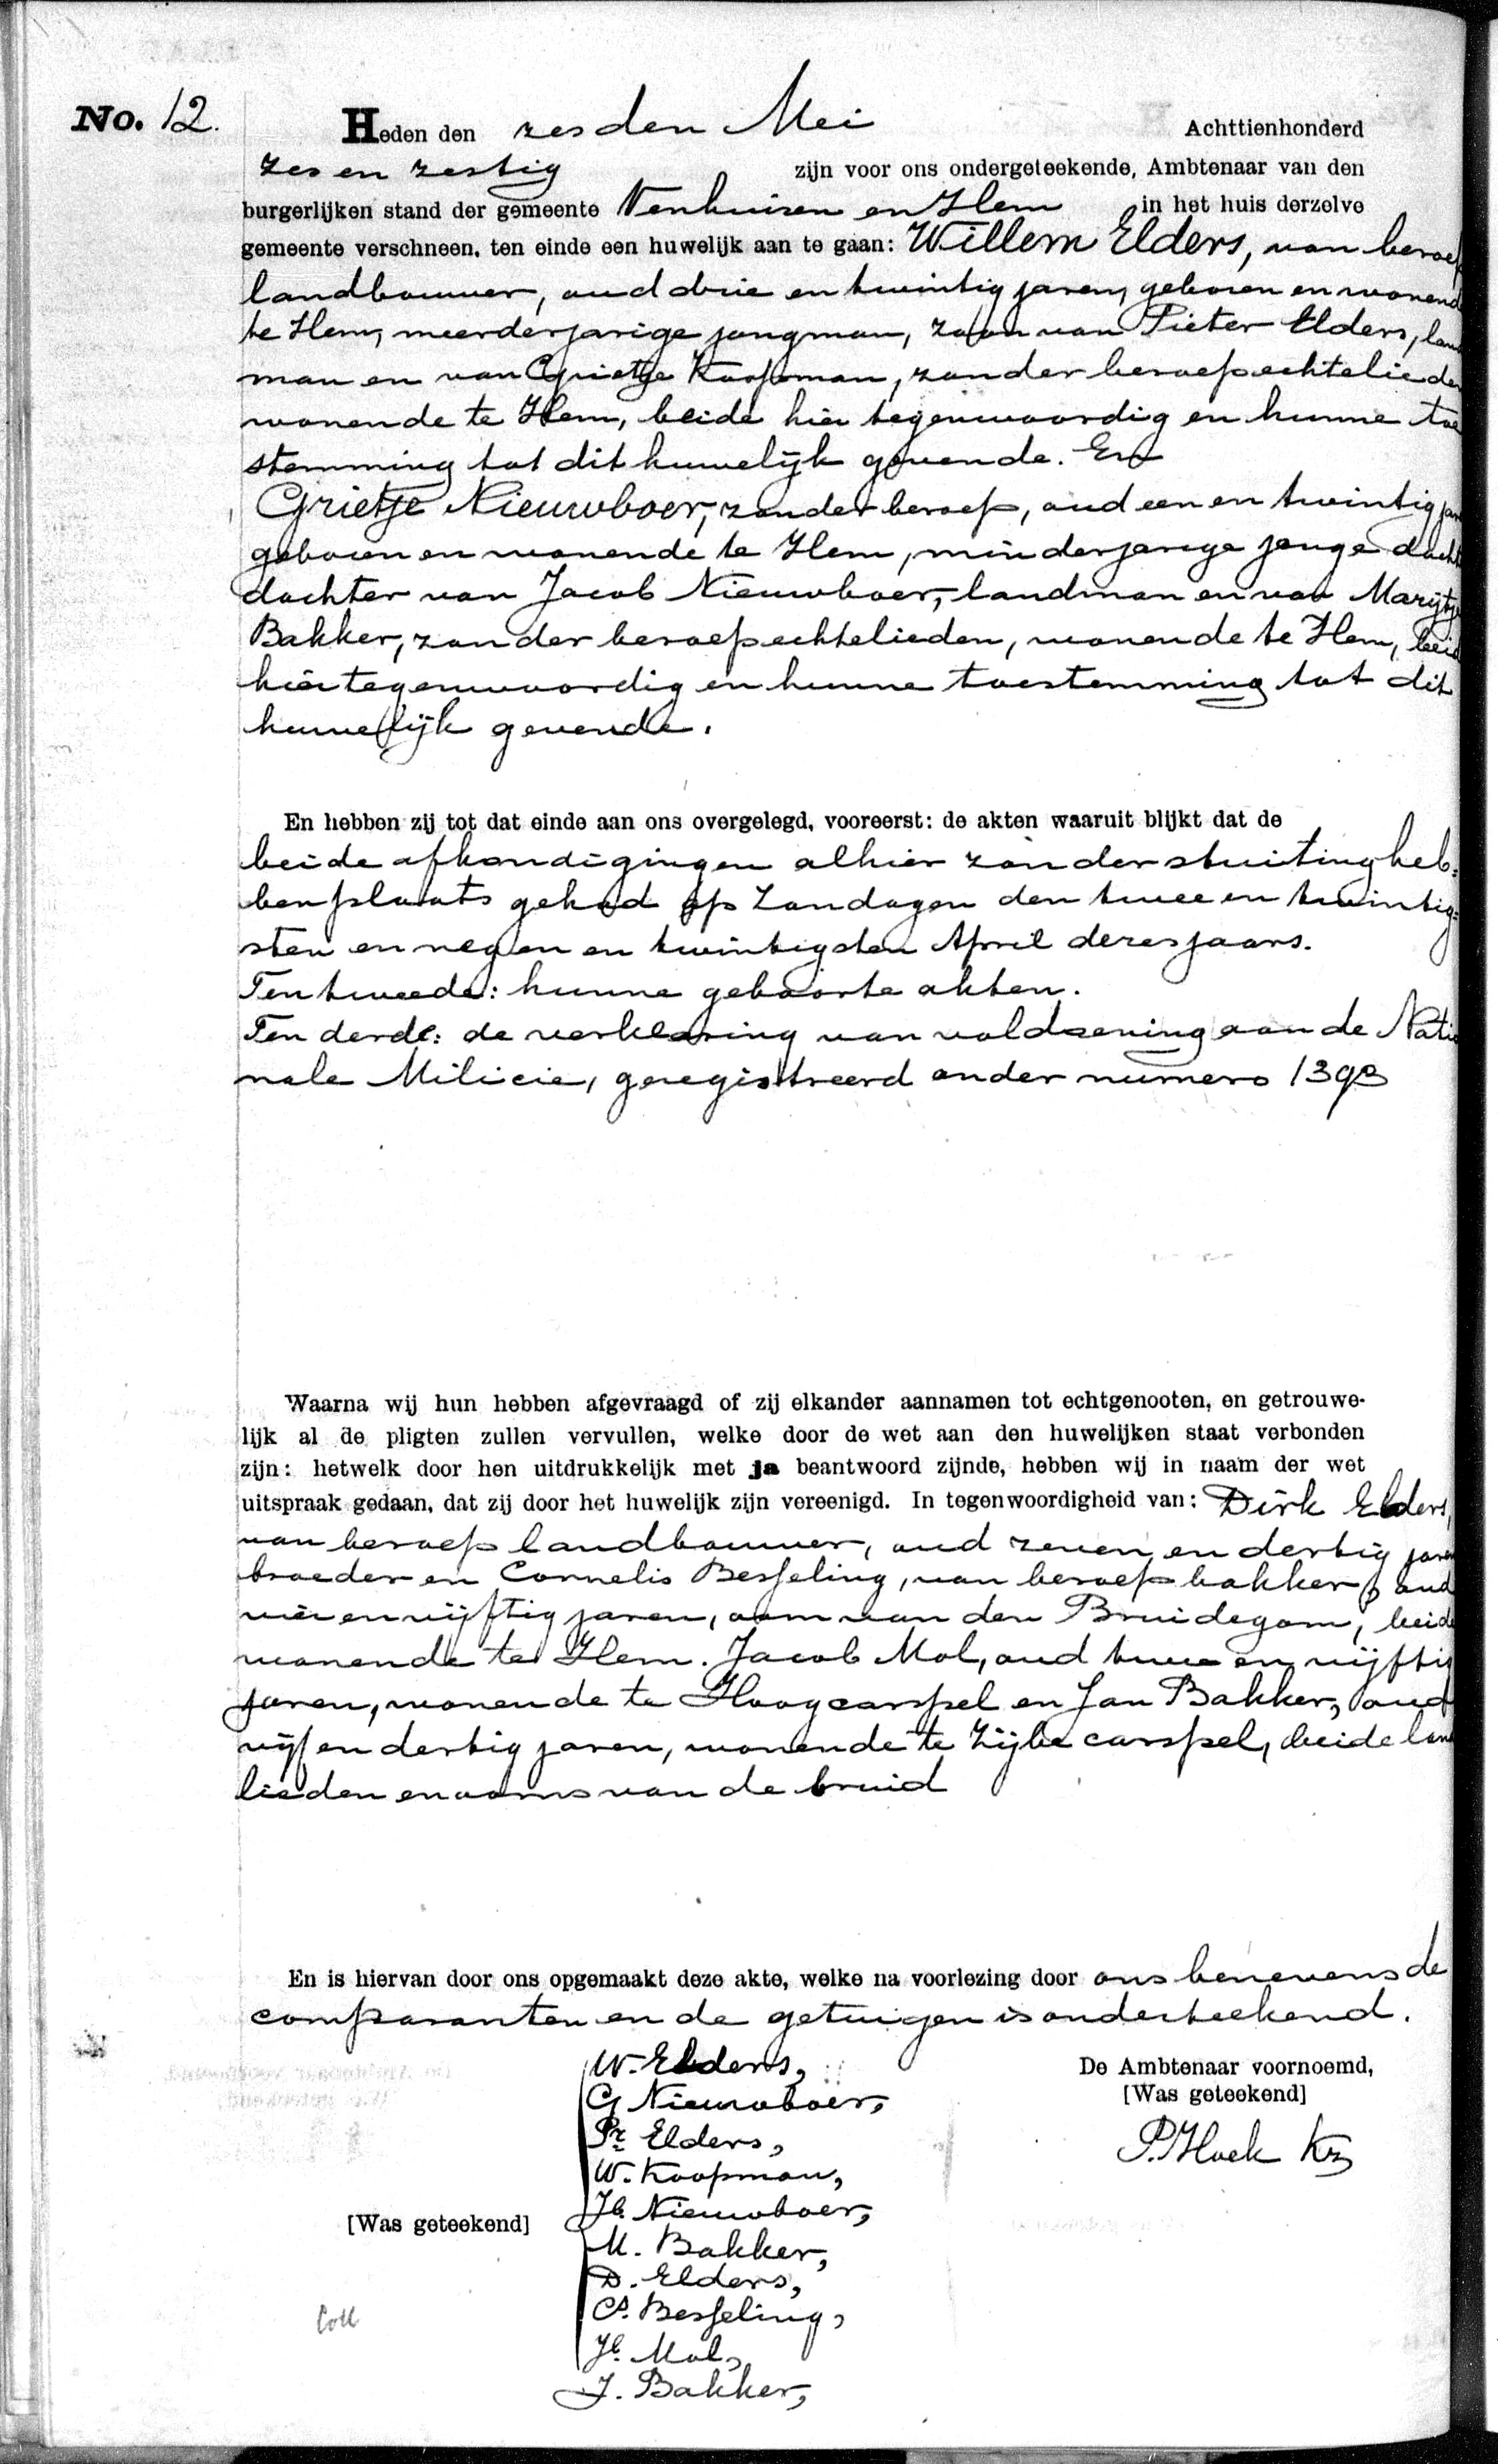 No. 12.
Heden den zesden Mei Achttienhonderd
zes en zestig zijn voor ons ondergeteekende, Ambtenaar van den
burgerlijken stand der gemeente Venhuizen en Hem in het huis derzelve
gemeente verschneen, ten einde een huwelijk aan te gaan: Willem Elders, van beroep
landbouwer, oud drie en twintig jaren, geboren en wonend
te Hem, meerderjarige jongman, zoon van Pieter Elders, land
man en van Grietje Koopman, zonder beroep echtelieden
wonende te Hem, beide hier tegenwoordig en hunne toe
stemming tot dit huwelijk gevende. En
Grietje Nieuwboer, zonder beroep, oud een en twintig jare
geboren en wonende te Hem, minderjarige jonge docht
dochter van Jacob Nieuwboer, landman en van Marijtje
Bakker, zonder beroep echtelieden, wonende te Hem, beid
hier tegenwoordig en hunne toestemming tot dit
huwelijk gevende.
En hebben zij tot dat einde aan ons overgelegd, vooreerst: de akten waaruit blijkt dat de
beide afkondigingen alhier zonder stuiting heb=
ben plaats gehad op Zondagen den twee en twintig=
sten en negen en twintigsten April dezes jaars.
Ten tweede: hunne geboorte akten.
Ten derde: de verklaring van voldoening aan de Natio
nale Milicie, geregistreerd onder numero 1393
Waarna wij hun hebben afgevraagd of zij elkander aannamen tot echtgenooten, en getrouwe-
lijk al de pligten zullen vervullen, welke door de wet aan den huwelijken staat verbonden
zijn: hetwelk door hen uitdrukkelijk met ja beantwoord zijnde, hebben wij in naam der wet
uitspraak gedaan, dat zij door het huwelijk zijn vereenigd. In tegenwoordigheid van: Dirk Elders,
van beroep landbouwer, oud zeven en dertig jaren
broeder en Cornelis Besseling, van beroep bakker, oud
vier en vijftig jaren, oom van den Bruidegom, beide
wonende te Hem. Jacob Mol, oud twee en vijftig
jaren, wonende te Hoogcarspel en Jan Bakker, oud
vijf en dertig jaren, wonende te Zijbecarspel, beide land
lieden en ooms van de bruid
En is hiervan door ons opgemaakt deze akte, welke na voorlezing door ons benevens de
comparanten en de getuigen is onderteekend.
W. Elders,
G Nieuwboer,
Pr Elders,
W. Koopman,
Jb. Nieuwboer,
M. Bakker,
D. Elders,
Cs. Besseling,
Jb. Mol,
J. Bakker,
[Was geteekend]
De Ambtenaar voornoemd,
[Was geteekend]
P. Hoek Kz
Coll